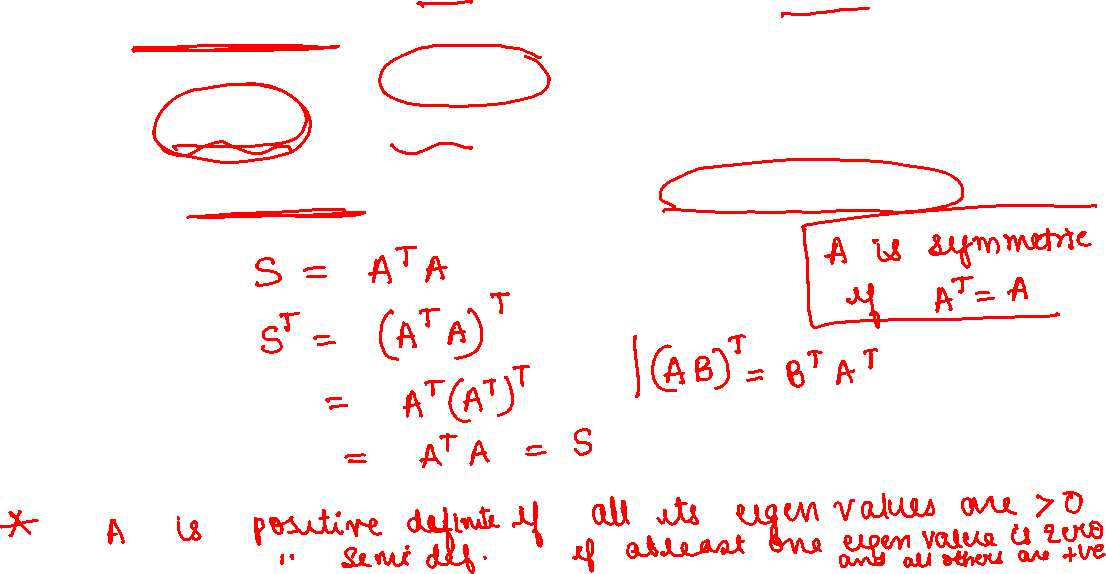 A is symmetric
if Aᵀ = A
S = AᵀA
Sᵀ = (AᵀA)ᵀ
(AB)ᵀ = BᵀAᵀ
= Aᵀ(Aᵀ)ᵀ
= AᵀA = S
* A is positive definite if all its eigen values are >0
" semi def. if atleast one eigen value is zero
and all others are +ve